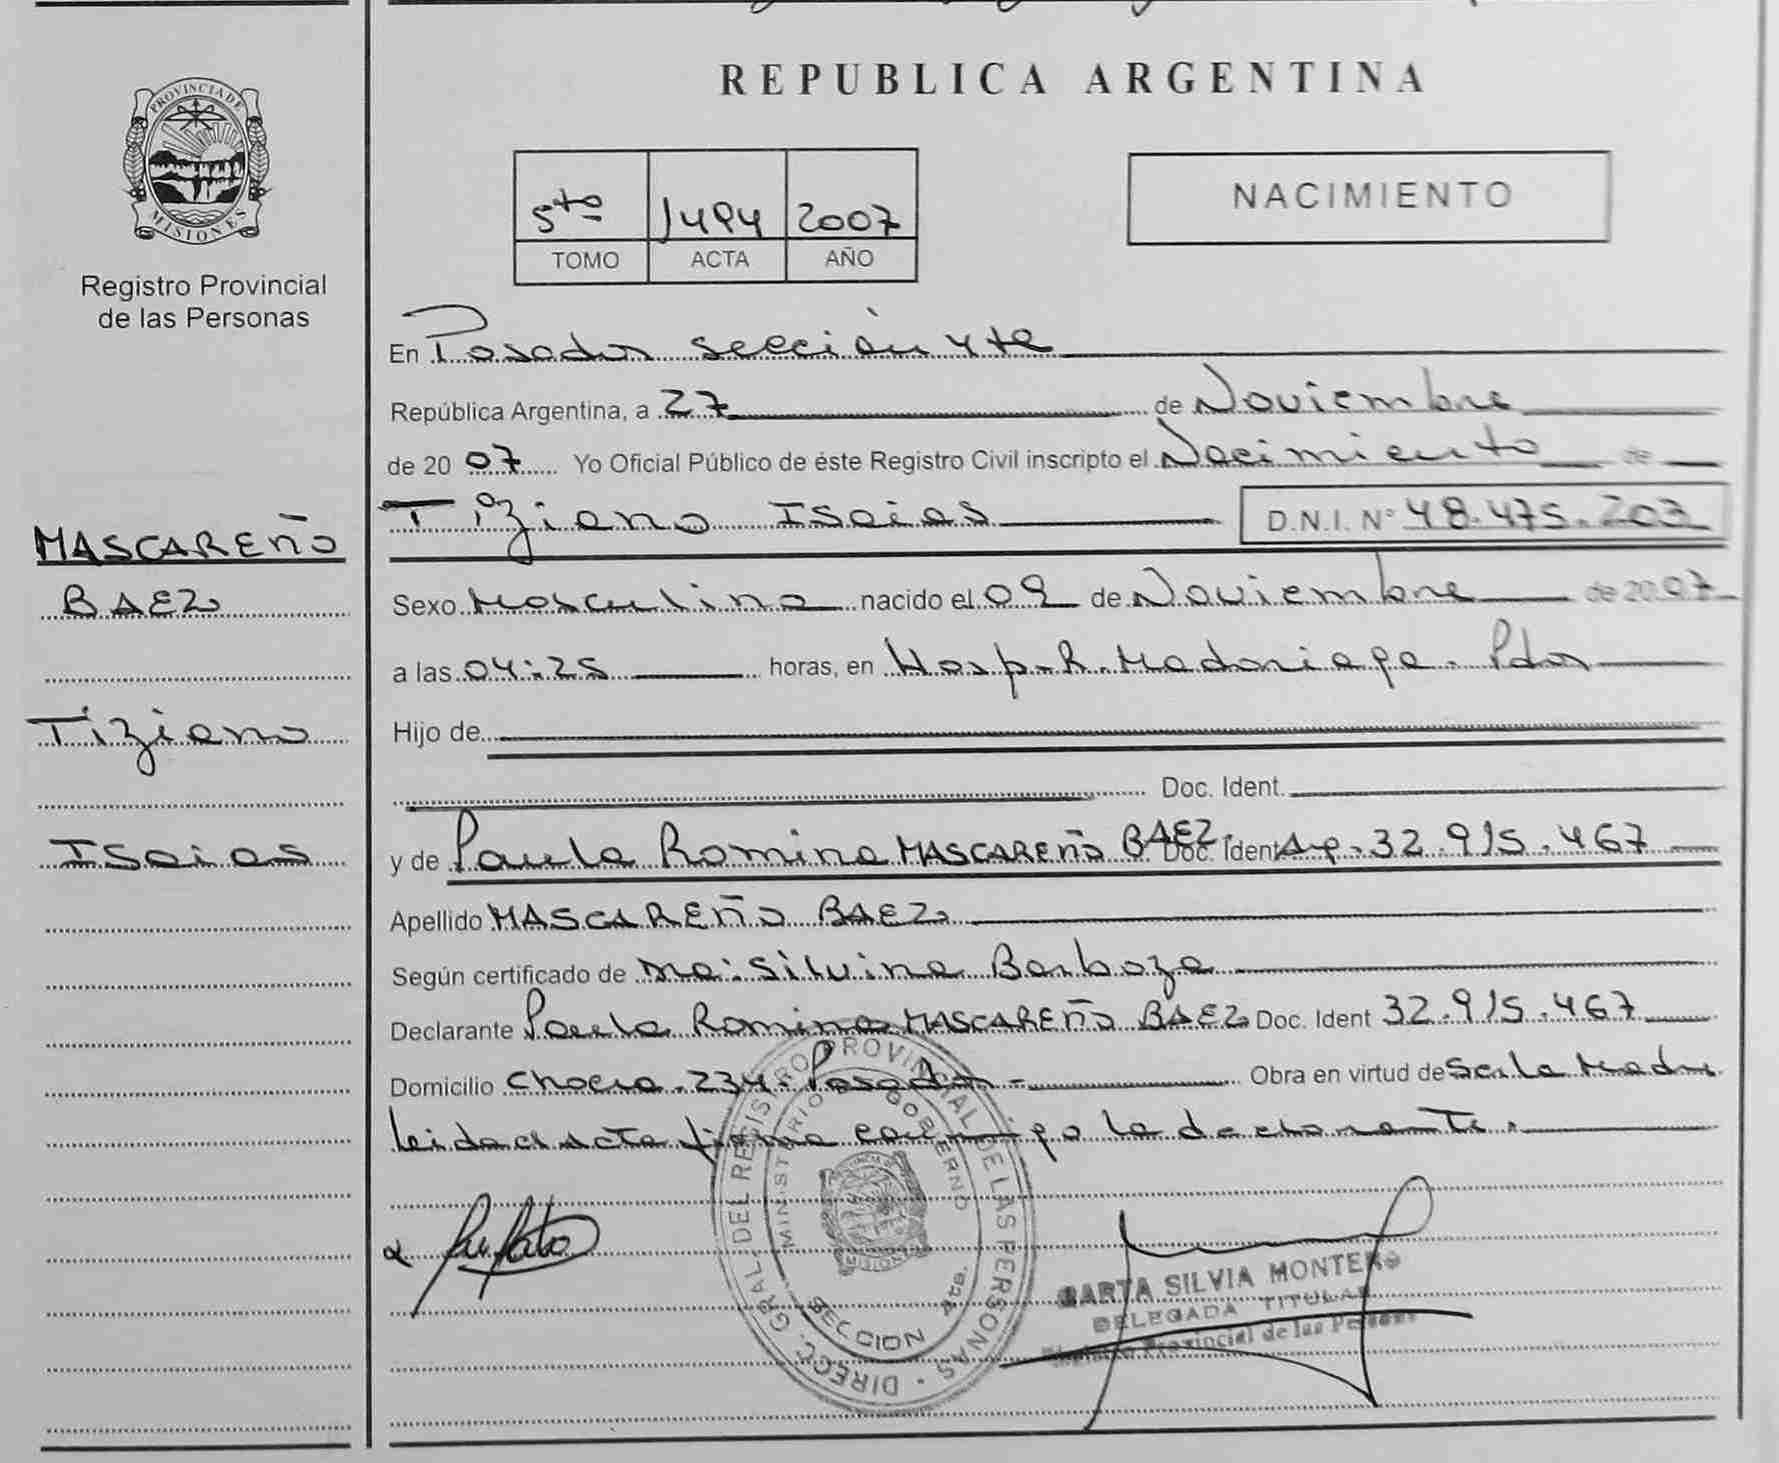 REPUBLICA ARGENTINA
PROVINCIA DE MISIONES
Registro Provincial
de las Personas
5to 1494 2007
TOMO ACTA AÑO
NACIMIENTO
En Posadas sección 4ta
República Argentina, a 27 de Noviembre
de 2007 Yo Oficial Público de éste Registro Civil inscripto el Nacimiento de
Tiziano Isaias D.N.I. Nº 48.475.203
MASCAREÑO
BAEZ
Tiziano
Isaias
Sexo Masculino nacido el 09 de Noviembre de 2007
a las 04:25 horas, en Hosp. R. Madariaga. Pdas
Hijo de
Doc. Ident.
y de Paula Romina MASCAREÑO BAEZ. Doc. Ident Ap. 32.915.467
Apellido MASCAREÑO BAEZ
Según certificado de Ma: Silvina Barboza
Declarante Paula Romina MASCAREÑO BAEZ Doc. Ident 32.915.467
Domicilio Chaco. 234. Posadas - Obra en virtud de Ser la Madre
leida el acta firma conmigo la declarante.
DIRECC. GRAL. DEL REGISTRO PROVINCIAL DE LAS PERSONAS
MINISTERIO GOBIERNO
SECCION 4ta.
MISIONES
SILVIA MONTERO
DELEGADA TITULAR
Provincial de las Personas